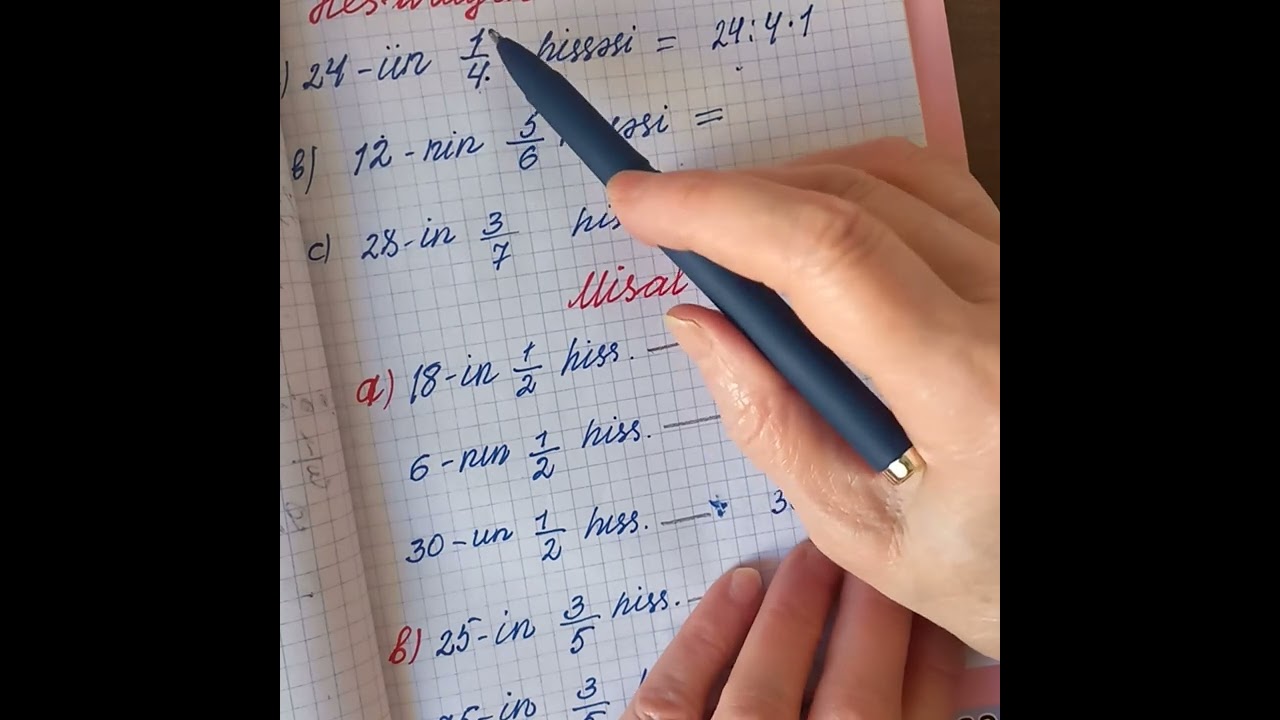 ) 24-ün 1/4 hissəsi = 24:4·1
b) 12-nin 5/6 =
c) 28-in 3/7
Misal
a) 18-in 1/2 hiss. —
6-nın 1/2 hiss. —
30-un 1/2 hiss. —
b) 25-in 3/5 hiss. —